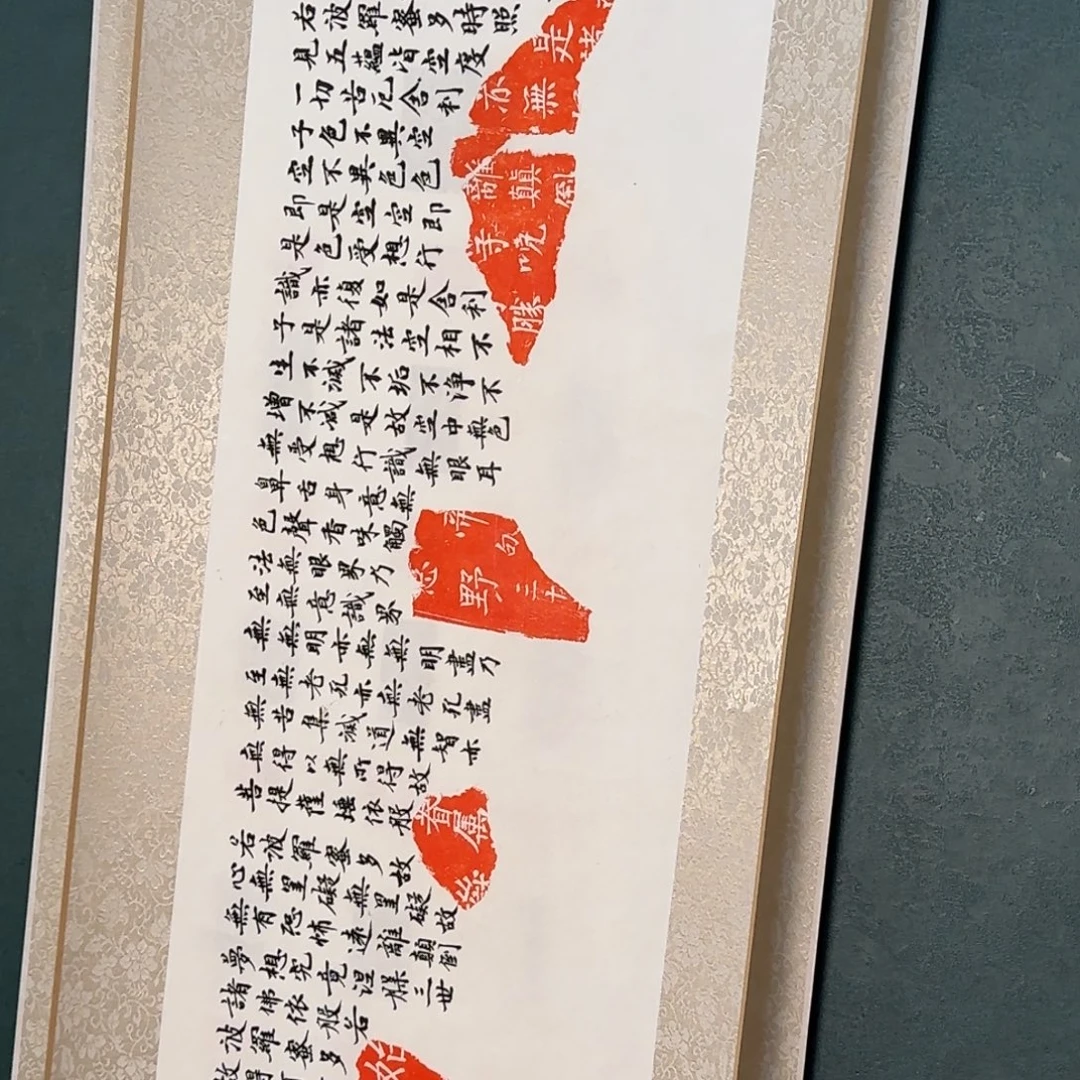 若波羅蜜多時照
見五蘊皆空度
一切苦厄舍利
子色不異空
空不異色色
即是空空即
是色受想行
識亦復如是舍利
子是諸法空相不
生不滅不垢不淨不
增不減是故空中無色
無受想行識無眼耳
鼻舌身意無
色聲香味觸
法無眼界乃
至無意識界
無無明亦無無明盡乃
至無老死亦無老死盡
無苦集滅道無智亦
無得以無所得故
菩提薩埵依般
若波羅蜜多故
心無罣礙無罣礙故
無有恐怖遠離顛倒
夢想究竟涅槃三世
諸佛依般若
波羅蜜多
故得
是諸
亦無
離顛倒
子曉
勝
句
野三十
眷屬
始